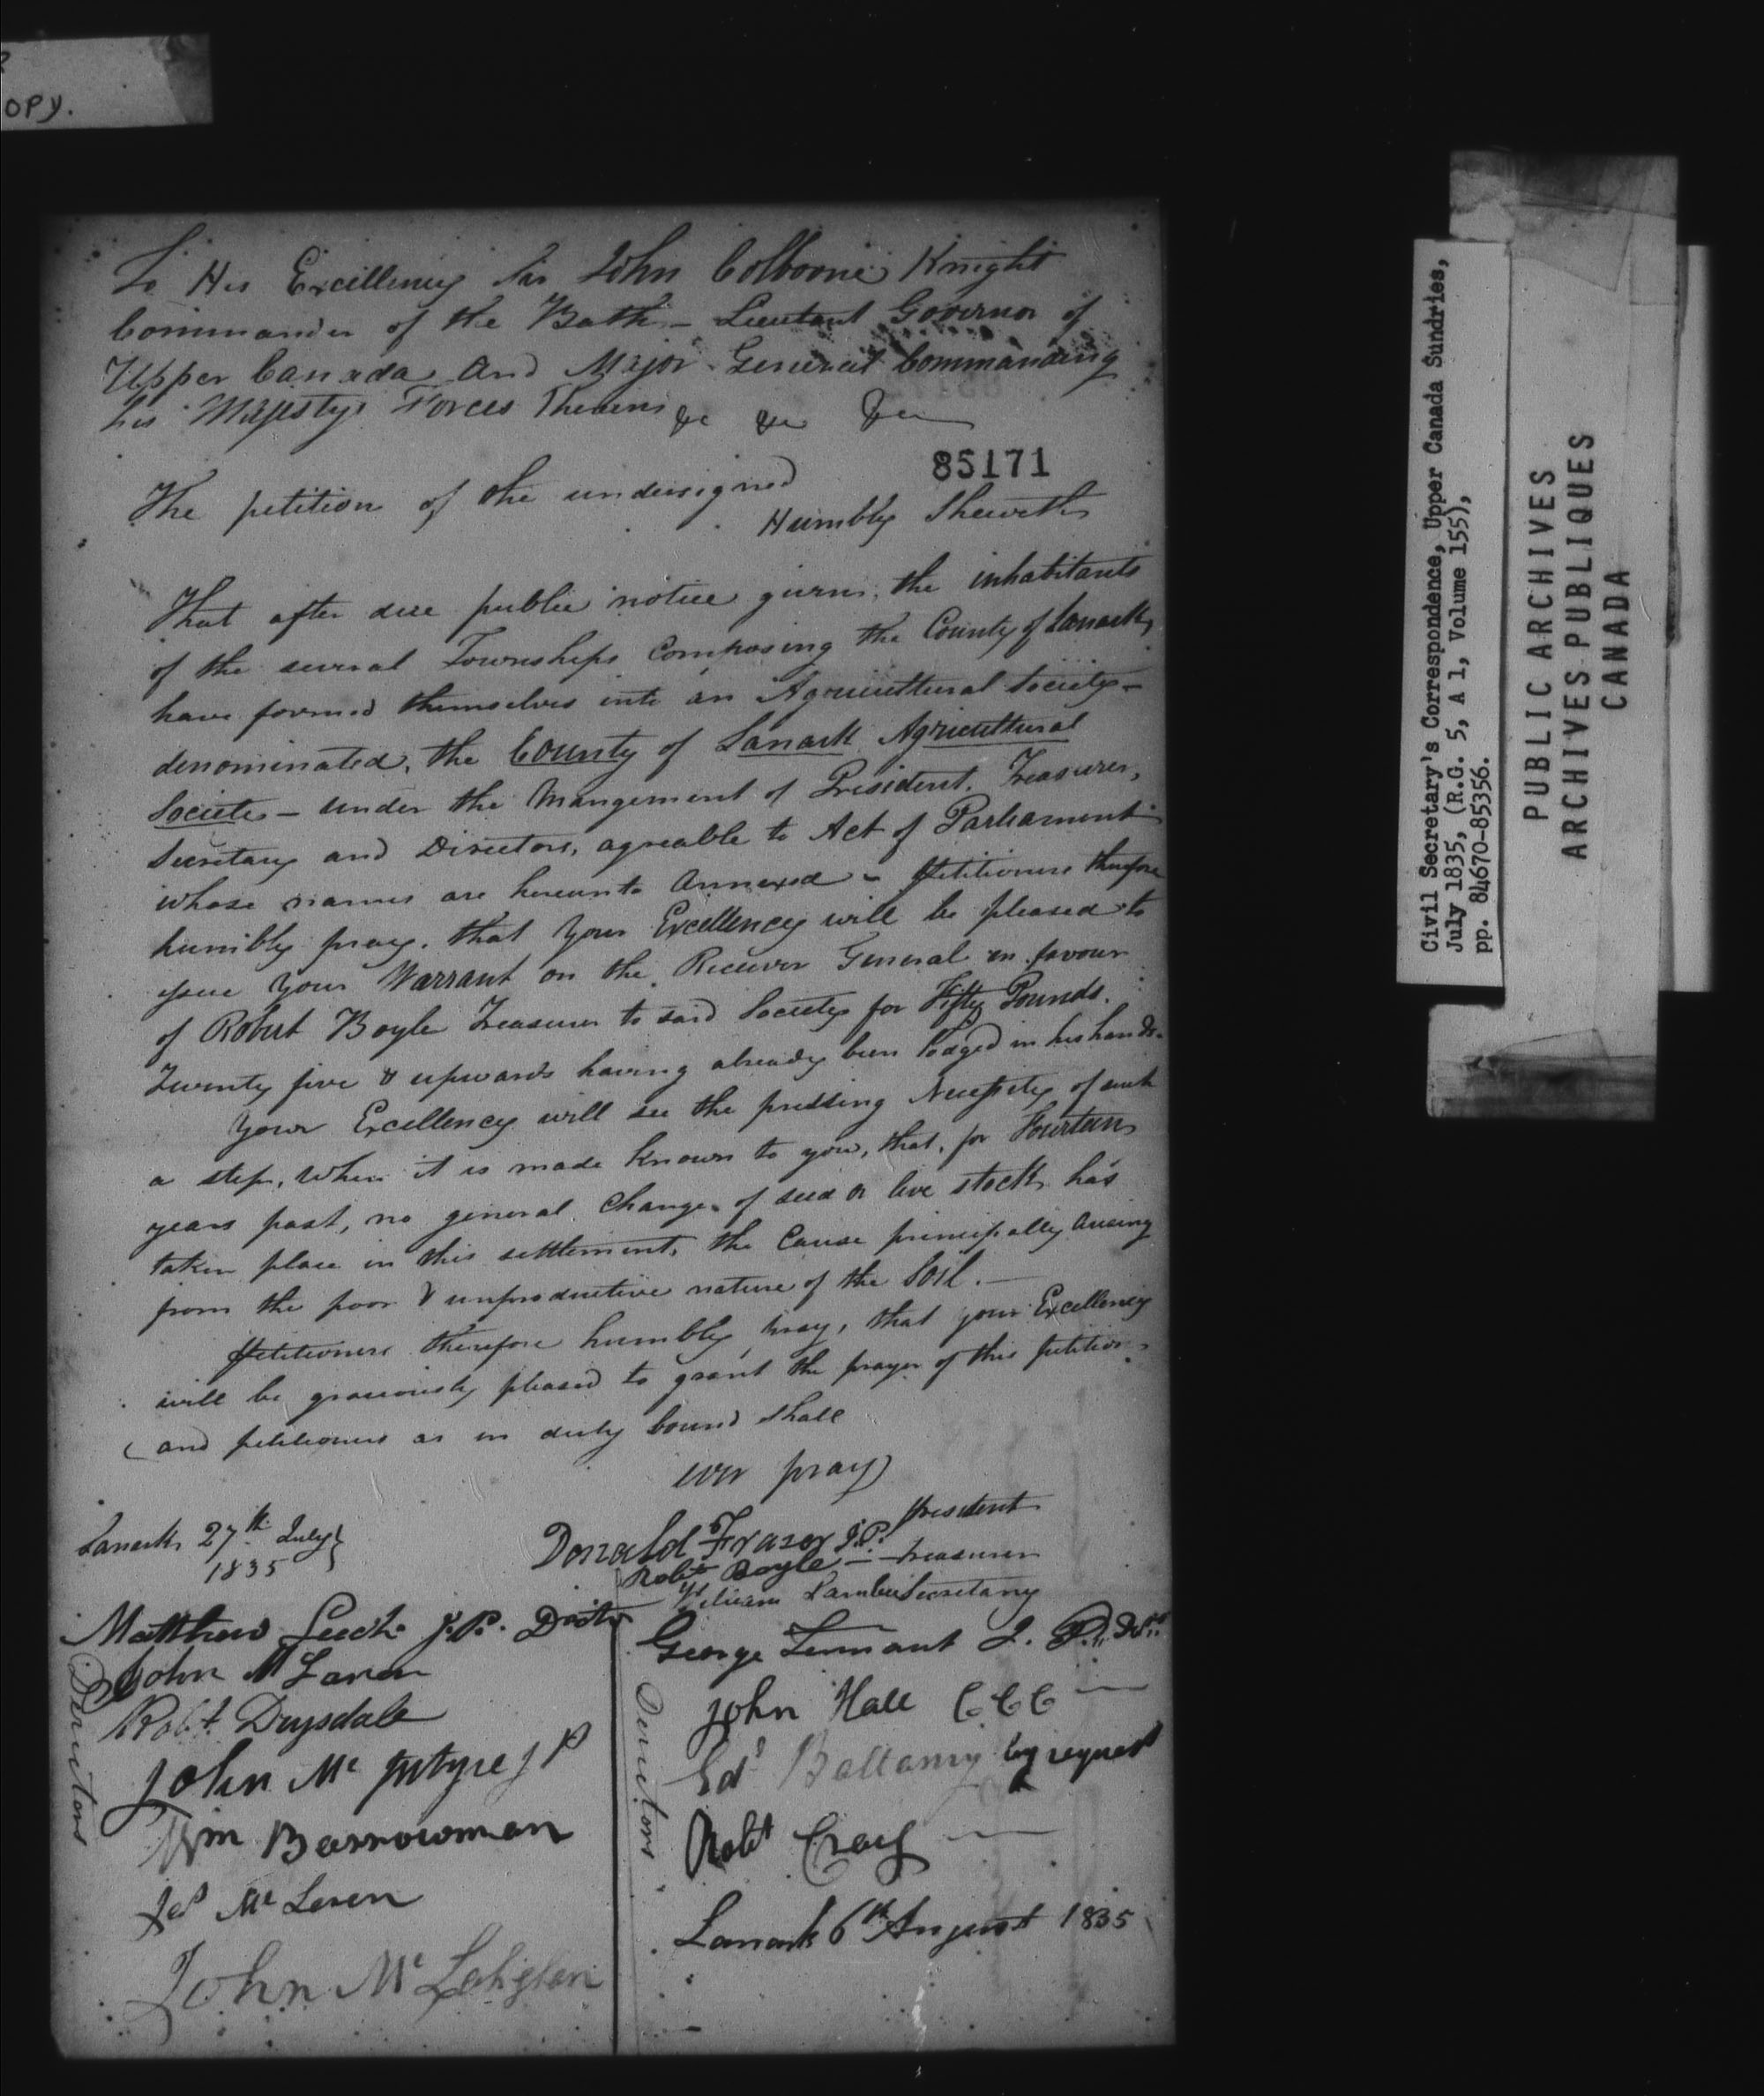 OPY.
To His Excellency Sir John Colborne Knight
Commander of the Bath - Lieutant Governor of
Upper Canada and Major General Commanding
his Majestys Forces Therein &c &c &c
85171
The petition of the undersigned
Humbly Sheweth
That after due public notice given, the inhabitants
of the several Townships Composing the County of Lanark,
have formed themselves into an Agricultural Society -
denominated, the County of Lanark Agricultural
Society - under the Mangement of President, Treasurer,
Secretary and Directors, agreable to Act of Parliament
whose names are hereunto Annexed - Petitioners therefore
humbly pray, that Your Excellency will be pleased to
issue Your Warrant on the Receiver General in favour
of Robert Boyle Treasurer to said Society for Fifty Pounds.
Twenty five & upwards having already been lodged in his hands.
Your Excellency will see the pressing Necessity of such
a step, when it is made known to you, that, for Fourteen
years past, no general Change of seed or live stock has
taken place in this settlement, the Cause principally arising
from the poor & unproductive nature of the Soil. -
Petitioners therefore humbly pray, that your Excellency
will be graciously pleased to grant the prayer of this petition
and petitioners as in duty bound shall
ever pray
Lanark 27th July
1835
Donald Fraser J.P. president
Robt Boyle - treasurer
William Lambie Secretary
Matthew Leech J.P.
Directors
John McLaren
Robt. Drysdale
John McIntyre J P
Wm Barrowman
Jas McLaren
John McLaghlan
George Tennant J. P.
Directors
John Hall C C C
Edd Bellamy by request
Robt Craig
Lanark 6th August 1835
Civil Secretary's Correspondence, Upper Canada Sundries,
July 1835, (R.G. 5, A 1, Volume 155),
pp. 84670-85356.
PUBLIC ARCHIVES
ARCHIVES PUBLIQUES
CANADA